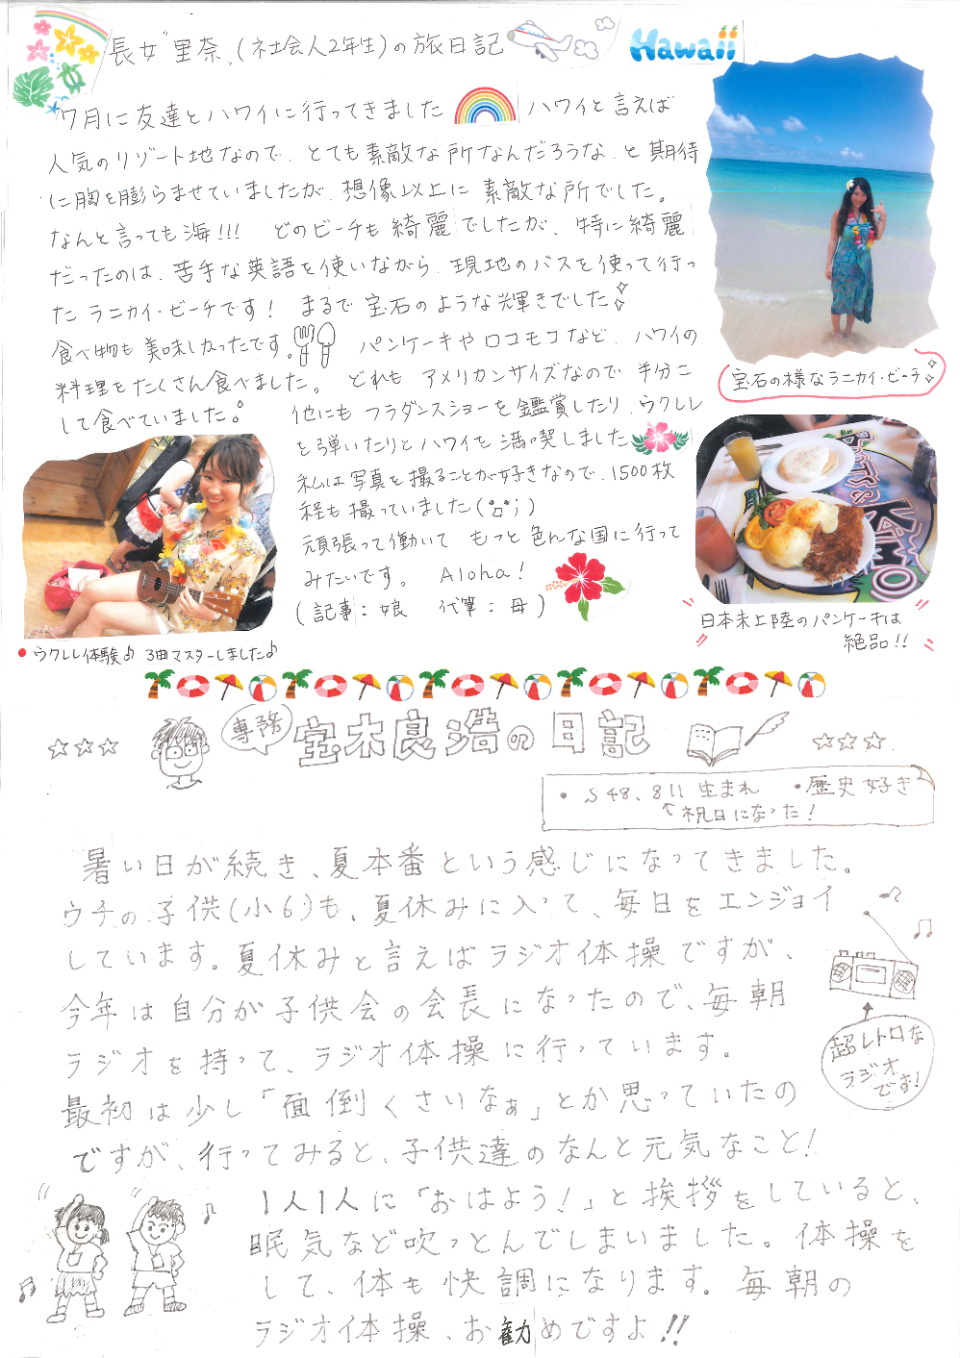 長女 里奈(社会人2年生)の旅日記
Hawaii
7月に友達とハワイに行ってきました ハワイと言えば
人気のリゾート地なので、とても素敵な所なんだろうな、と期待
に胸を膨らませていましたが、想像以上に 素敵な所でした。
なんと言っても海!!! どのビーチも綺麗でしたが、特に綺麗
だったのは、苦手な英語を使いながら、現地のバスを使って行っ
た ラニカイ・ビーチです! まるで 宝石のような輝きでした
食べ物も美味しかったです。 パンケーキやロコモコなど、ハワイの
料理をたくさん食べました。 どれも アメリカンサイズなので 半分こ
して食べていました。
他にも フラダンスショーを鑑賞したり、ウクレレ
を弾いたりとハワイを満喫しました
私は写真を撮ることが好きなので、1500枚
程も撮っていました(;)
頑張って働いて もっと色んな国に行って
みたいです。 Aloha!
(記事:娘 代筆:母)
宝石の様なラニカイ・ビーチ
日本未上陸のパンケーキは
絶品!!
• ウクレレ体験♪ 3曲マスターしました♪
専務 宝木良浩の日記
• S48、8 11 生まれ • 歴史好き
↑祝日になった!
暑い日が続き、夏本番という感じになってきました。
ウチの子供(小6)も、夏休みに入って、毎日をエンジョイ
しています。夏休みと言えばラジオ体操ですが、
今年は自分が子供会の会長になったので、毎朝
ラジオを持って、ラジオ体操に行っています。
超レトロな
ラジオ
です!
最初は少し「面倒くさいなぁ」とか思っていたの
ですが、行ってみると、子供達のなんと元気なこと!
1人1人に「おはよう!」と挨拶をしていると、
眠気など吹っとんでしまいました。体操を
して、体も快調になります。毎朝の
ラジオ体操、お勧めですよ!!